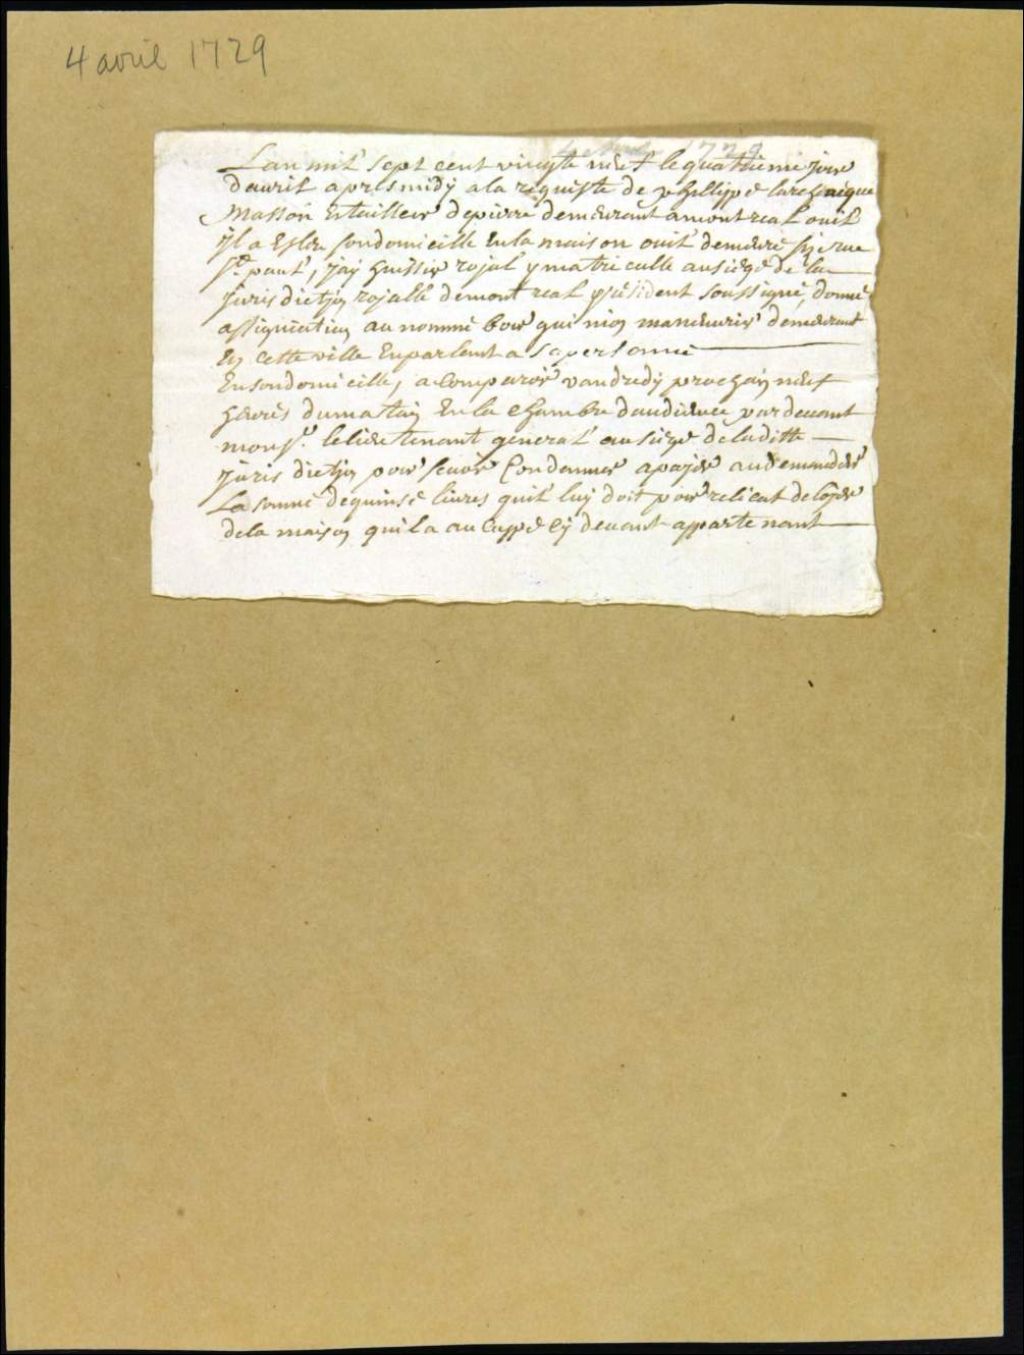 4 avril 1729
1729
Lan mil sept cent vingte neuf le quatrieme jour
davril apres midy a la requiste de phillippe
Masson et tailleur depierre demeurant a mont real ouil
jl a Eslu sondomicille En la maison ouil demeure size rue
St. paul, jay huissier rojal ymatriculle ausiege de la
jurisdiction rojalle demont real y résident soussigne, donné
assignation au nommé bourguinion maneuvrir demeurant
En cette ville Enparlant a sapersonne
Ensondomicille, a Comparoir vandredy prochain neuf
heures dumastain En la chambre daudience pardevant
monsr. lelieutenant general au siege deladitte
jurisdiction pour sevoir Condamner apajer audemandeur
La somme dequinse livres quil luy doit pour relicat deloyer
dela maison quil a au Cy devant appartenant